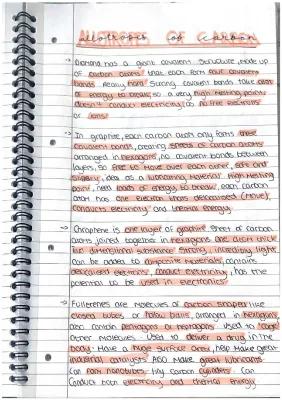 Allotropes of Carbon
Diamond has a giant covalent structure, made up
of carbon atoms that each form four covalent
bonds really hard Strong covalent bonds take alot
of energy to break so a very high melting point,
doesn't conduct electricity, as no free electrons
or ions!
In graphite, each carbon atom only forms three
covalent bonds, creating sheets of carbon atoms
arranged in hexagons, no covalent bonds between
layers, so free to move over each other, soft and
slippery, idea as a lubricating material High melting
point, need loads of energy to break, each carbon
atom has one electron thats delocalised (move),
conducts electricity and thermal energy.
Graphene is one layer of graphite sheet of carbon
atoms joined together in hexagons one atom thick
two dimensional substance strong, incredibly light
Can be added to composite materials, contains
delocalised electrons, conduct electricity, has the
potential to be used in electronics
Fullerenes are molecules of carbon shaped like
closed tubes or hollow balls, arranged in hexagons
also contain pentagons or heptagons used to 'cage'
other molecules Used to deliver a drug in the
body. Have a huge surface area, help Make great
industrial catalysts ASO Make great lubricants
Can form nanotubes - tiny carbon cylinders Can
Conduct both electricity and thermal energy